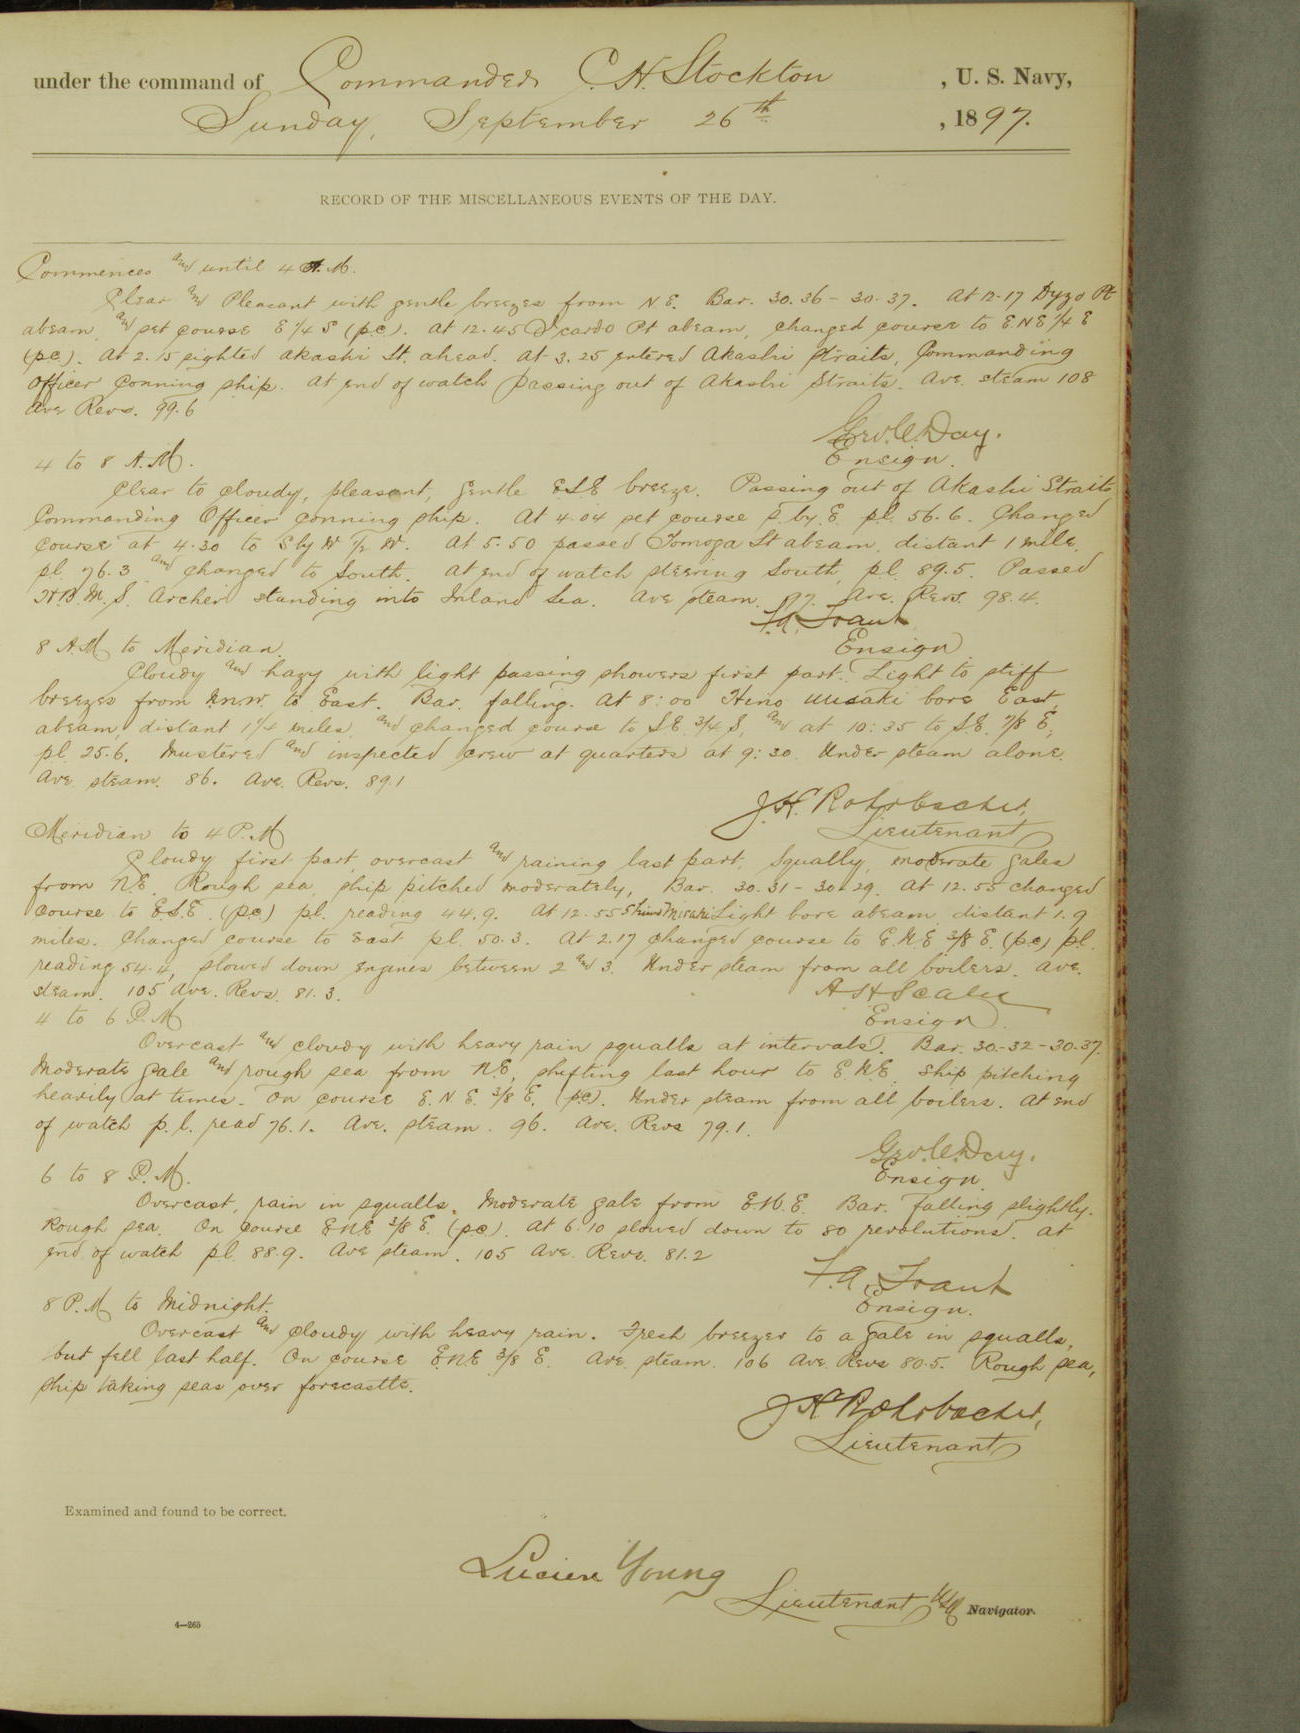 under the command of Commander C. H. Stockton , U. S. Navy,
Sunday, September 26th , 1897.
RECORD OF THE MISCELLANEOUS EVENTS OF THE DAY.
Commences and until 4 A.M.
Clear and Pleasant with gentle breezes from NE. Bar. 30.36 - 30.37. At 12.17 Dyzo Pt
abeam and set course E 1/4 S (p.c.). At 12.45 Pt abeam, changed course to ENE 1/4 E
(p.c.). At 2.15 sighted Akashi Lt. ahead. At 3.25 entered Akashi Straits, Commanding
Officer conning ship. At end of watch passing out of Akashi Straits. Ave. steam 108
Ave Revs. 99.6
Geo. C. Day.
Ensign.
4 to 8 A.M.
Clear to cloudy, pleasant, gentle ESE breeze. Passing out of Akashi Straits
Commanding Officer conning ship. At 4.04 set course S. by E. pl. 56.6. Changed
course at 4.30 to S by W 1/2 W. At 5.50 passed Tomoga Lt abeam, distant 1 mile,
pl. 76.3 and changed to South. At end of watch steering South, pl. 89.5. Passed
H.B.M.S. Archer standing into Inland Sea. Ave steam. 97. Ave. Revs. 98.4.
F.A. Traut
Ensign
8 A.M to Meridian.
Cloudy and hazy with light passing showers first part. Light to stiff
breezes from NNW. to East. Bar. falling. At 8:00 Hino Misaki bore East,
abeam, distant 1 1/4 miles, and changed course to SE 3/4 S, and at 10:35 to S.E. 7/8 E,
pl. 25.6. Mustered and inspected crew at quarters at 9:30. Under steam alone.
Ave. steam. 86. Ave. Revs. 89.1
J.H. Rohrbacher,
Lieutenant
Meridian to 4 P.M
Cloudy first part, overcast and raining last part. Squally, moderate gales
from NE. Rough sea, ship pitched moderately, Bar. 30.31 - 30.29. At 12.55 changed
course to ESE. (p.c.) pl. reading 44.9. At 12.55 Misaki Light bore abeam, distant 1.9
miles. Changed course to East pl. 50.3. At 2.17 changed course to E.N.E 3/8 E. (p.c) pl.
reading 54.4, slowed down engines between 2 and 3. Under steam from all boilers. Ave.
steam. 105 Ave. Revs. 81.3.
A H Scales
Ensign.
4 to 6 P.M
Overcast and cloudy with heavy rain squalls at intervals. Bar. 30.32 - 30.37.
Moderate gale and rough sea from N.E, shifting last hour to E.N.E. Ship pitching
heavily at times. On course E.N.E. 3/8 E. (p.c). Under steam from all boilers. At end
of watch p.l. read 76.1. Ave. steam. 96. Ave. Revs 79.1.
Geo. C. Day.
Ensign.
6 to 8 P.M.
Overcast, rain in squalls. Moderate gale from E.N.E. Bar. falling slightly.
Rough sea. On course ENE 3/8 E. (p.c). At 6.10 slowed down to 80 revolutions. At
end of watch pl. 88.9. Ave steam. 105 Ave. Revs. 81.2
F.A. Traut
Ensign.
8 P.M to Midnight.
Overcast and cloudy with heavy rain. Fresh breezes to a gale in squalls,
but fell last half. On course E.N.E 3/8 E. Ave. steam. 106 Ave. Revs 80.5. Rough sea,
ship taking seas over forecastle.
J H Rohrbacher,
Lieutenant
Examined and found to be correct.
Lucien Young
Lieutenant USN Navigator.
4—265